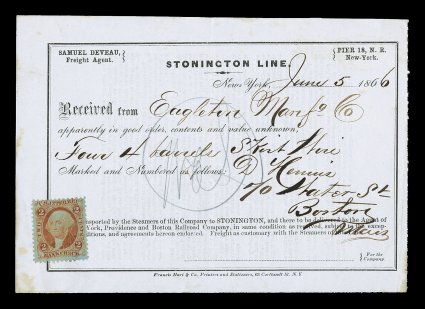 SAMUEL DEVEAU, Freight Agent.
PIER 18, N. R. New-York.
STONINGTON LINE.
New York, June 5 1866
Received from Eagleton Manfg Co
apparently in good order, contents and value unknown,
Four 4 barrels Wire
Marked and Numbered as follows: D
70 Water St
Boston
sported by the Steamers of this Company to STONINGTON, and there to be delivered to the Agent of
York, Providence and Boston Railroad Company, in same condition as received, subject to the excep-
ditions, and agreements hereon endorsed. Freight as customary with the Steamers of
For the Company.
2 2
BANK CHECK
Francis Hart & Co., Printers and Stationers, 63 Cortlandt St. N. Y.